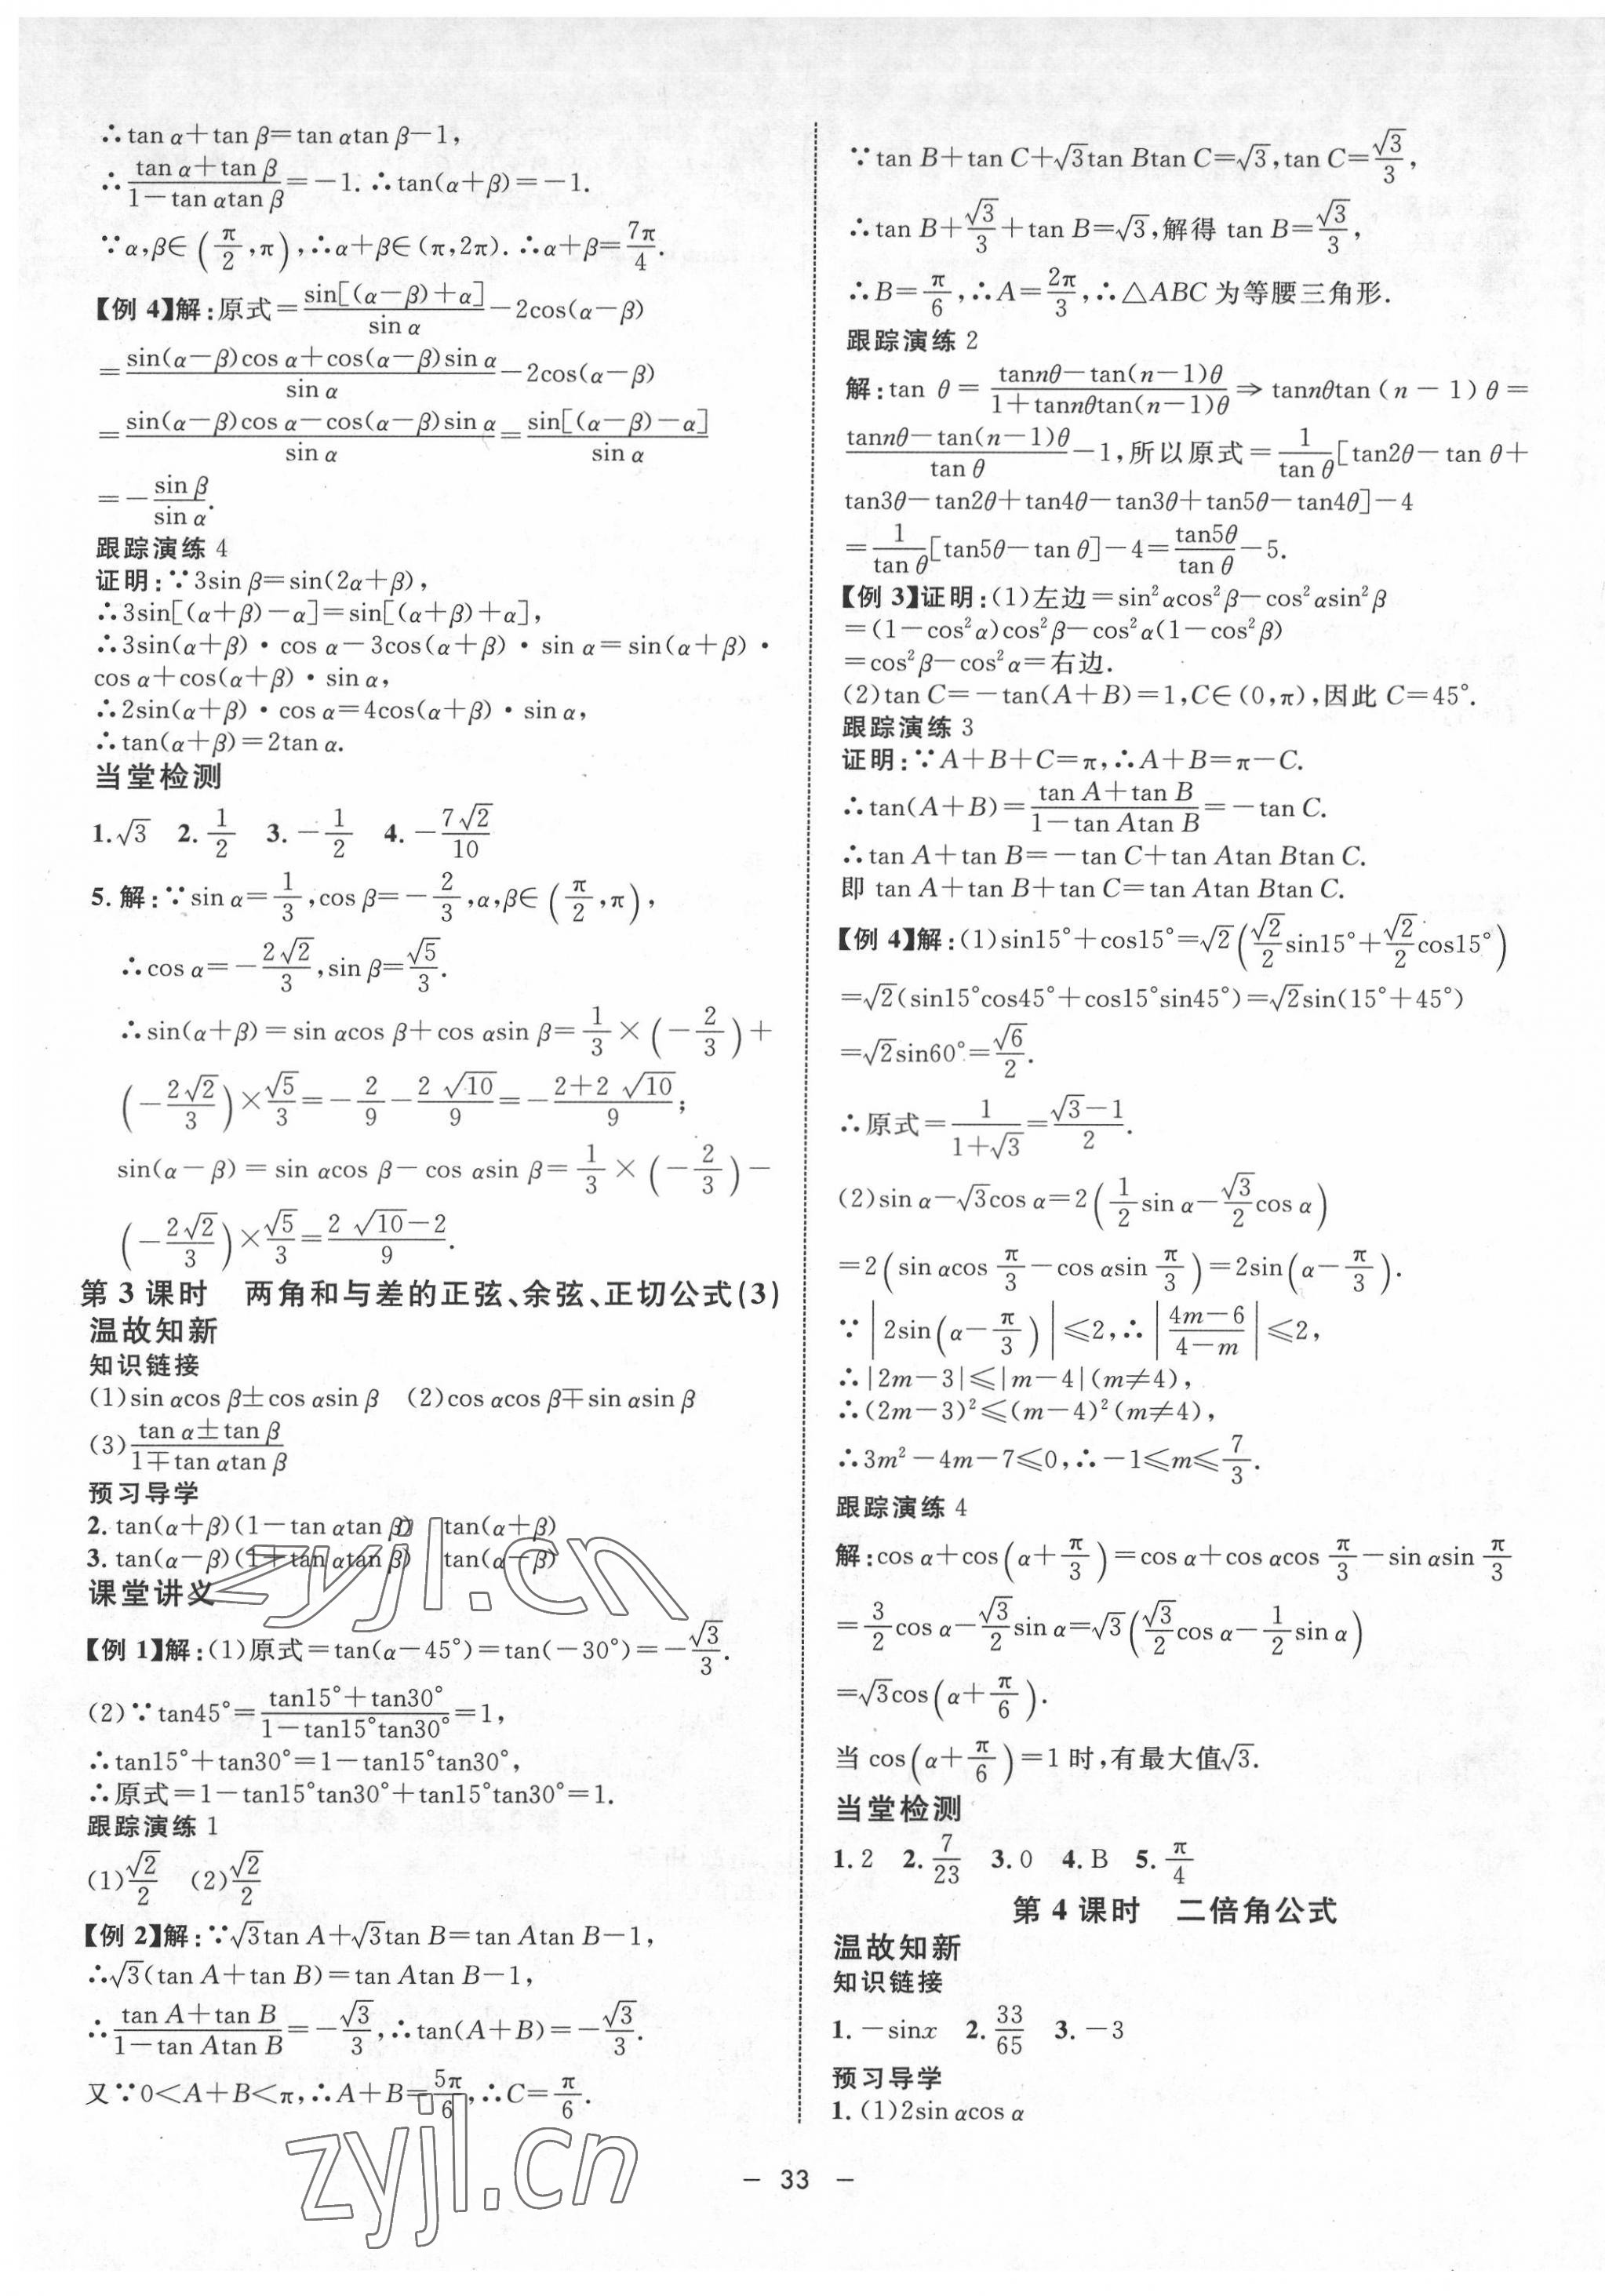 ∴tan α+tan β=tan αtan β−1,
∴(tan α+tan β)/(1−tan αtan β)=−1.∴tan(α+β)=−1.
∵α,β∈(π/2,π),∴α+β∈(π,2π).∴α+β=7π/4.
【例 4】解:原式=sin[(α−β)+α]/sin α−2cos(α−β)
=(sin(α−β)cos α+cos(α−β)sin α)/sin α−2cos(α−β)
=(sin(α−β)cos α−cos(α−β)sin α)/sin α=sin[(α−β)−α]/sin α
=−sin β/sin α.
跟踪演练 4
证明:∵3sin β=sin(2α+β),
∴3sin[(α+β)−α]=sin[(α+β)+α],
∴3sin(α+β)·cos α−3cos(α+β)·sin α=sin(α+β)·
cos α+cos(α+β)·sin α,
∴2sin(α+β)·cos α=4cos(α+β)·sin α,
∴tan(α+β)=2tan α.
当堂检测
1.√3 2.1/2 3.−1/2 4.−7√2/10
5.解:∵sin α=1/3,cos β=−2/3,α,β∈(π/2,π),
∴cos α=−2√2/3,sin β=√5/3.
∴sin(α+β)=sin αcos β+cos αsin β=1/3×(−2/3)+
(−2√2/3)×√5/3=−2/9−2√10/9=−(2+2√10)/9;
sin(α−β)=sin αcos β−cos αsin β=1/3×(−2/3)−
(−2√2/3)×√5/3=(2√10−2)/9.
第 3 课时 两角和与差的正弦、余弦、正切公式(3)
温故知新
知识链接
(1)sin αcos β±cos αsin β (2)cos αcos β∓sin αsin β
(3)(tan α±tan β)/(1∓tan αtan β)
预习导学
2.tan(α+β)(1−tan αtan β) tan(α+β)
3.tan(α−β)(1+tan αtan β) tan(α−β)
课堂讲义
【例 1】解:(1)原式=tan(α−45°)=tan(−30°)=−√3/3.
(2)∵tan45°=(tan15°+tan30°)/(1−tan15°tan30°)=1,
∴tan15°+tan30°=1−tan15°tan30°,
∴原式=1−tan15°tan30°+tan15°tan30°=1.
跟踪演练 1
(1)√2/2 (2)√2/2
【例 2】解:∵√3tan A+√3tan B=tan Atan B−1,
∴√3(tan A+tan B)=tan Atan B−1,
∴(tan A+tan B)/(1−tan Atan B)=−√3/3,∴tan(A+B)=−√3/3.
又∵0<A+B<π,∴A+B=5π/6,∴C=π/6.
∵tan B+tan C+√3tan Btan C=√3,tan C=√3/3,
∴tan B+√3/3+tan B=√3,解得 tan B=√3/3,
∴B=π/6,∴A=2π/3,∴△ABC 为等腰三角形.
跟踪演练 2
解:tan θ=(tannθ−tan(n−1)θ)/(1+tannθtan(n−1)θ)⇒tannθtan(n−1)θ=
(tannθ−tan(n−1)θ)/tan θ−1,所以原式=1/tan θ[tan2θ−tan θ+
tan3θ−tan2θ+tan4θ−tan3θ+tan5θ−tan4θ]−4
=1/tan θ[tan5θ−tan θ]−4=tan5θ/tan θ−5.
【例 3】证明:(1)左边=sin²αcos²β−cos²αsin²β
=(1−cos²α)cos²β−cos²α(1−cos²β)
=cos²β−cos²α=右边.
(2)tan C=−tan(A+B)=1,C∈(0,π),因此 C=45°.
跟踪演练 3
证明:∵A+B+C=π,∴A+B=π−C.
∴tan(A+B)=(tan A+tan B)/(1−tan Atan B)=−tan C.
∴tan A+tan B=−tan C+tan Atan Btan C.
即 tan A+tan B+tan C=tan Atan Btan C.
【例 4】解:(1)sin15°+cos15°=√2(√2/2sin15°+√2/2cos15°)
=√2(sin15°cos45°+cos15°sin45°)=√2sin(15°+45°)
=√2sin60°=√6/2.
∴原式=1/(1+√3)=(√3−1)/2.
(2)sin α−√3cos α=2(1/2sin α−√3/2cos α)
=2(sin αcos π/3−cos αsin π/3)=2sin(α−π/3).
∵|2sin(α−π/3)|≤2,∴|(4m−6)/(4−m)|≤2,
∴|2m−3|≤|m−4|(m≠4),
∴(2m−3)²≤(m−4)²(m≠4),
∴3m²−4m−7≤0,∴−1≤m≤7/3.
跟踪演练 4
解:cos α+cos(α+π/3)=cos α+cos αcos π/3−sin αsin π/3
=3/2cos α−√3/2sin α=√3(√3/2cos α−1/2sin α)
=√3cos(α+π/6).
当 cos(α+π/6)=1 时,有最大值√3.
当堂检测
1.2 2.7/23 3.0 4.B 5.π/4
第 4 课时 二倍角公式
温故知新
知识链接
1.−sinx 2.33/65 3.−3
预习导学
1.(1)2sin αcos α
zyjl.cn
zyjl.cn
— 33 —